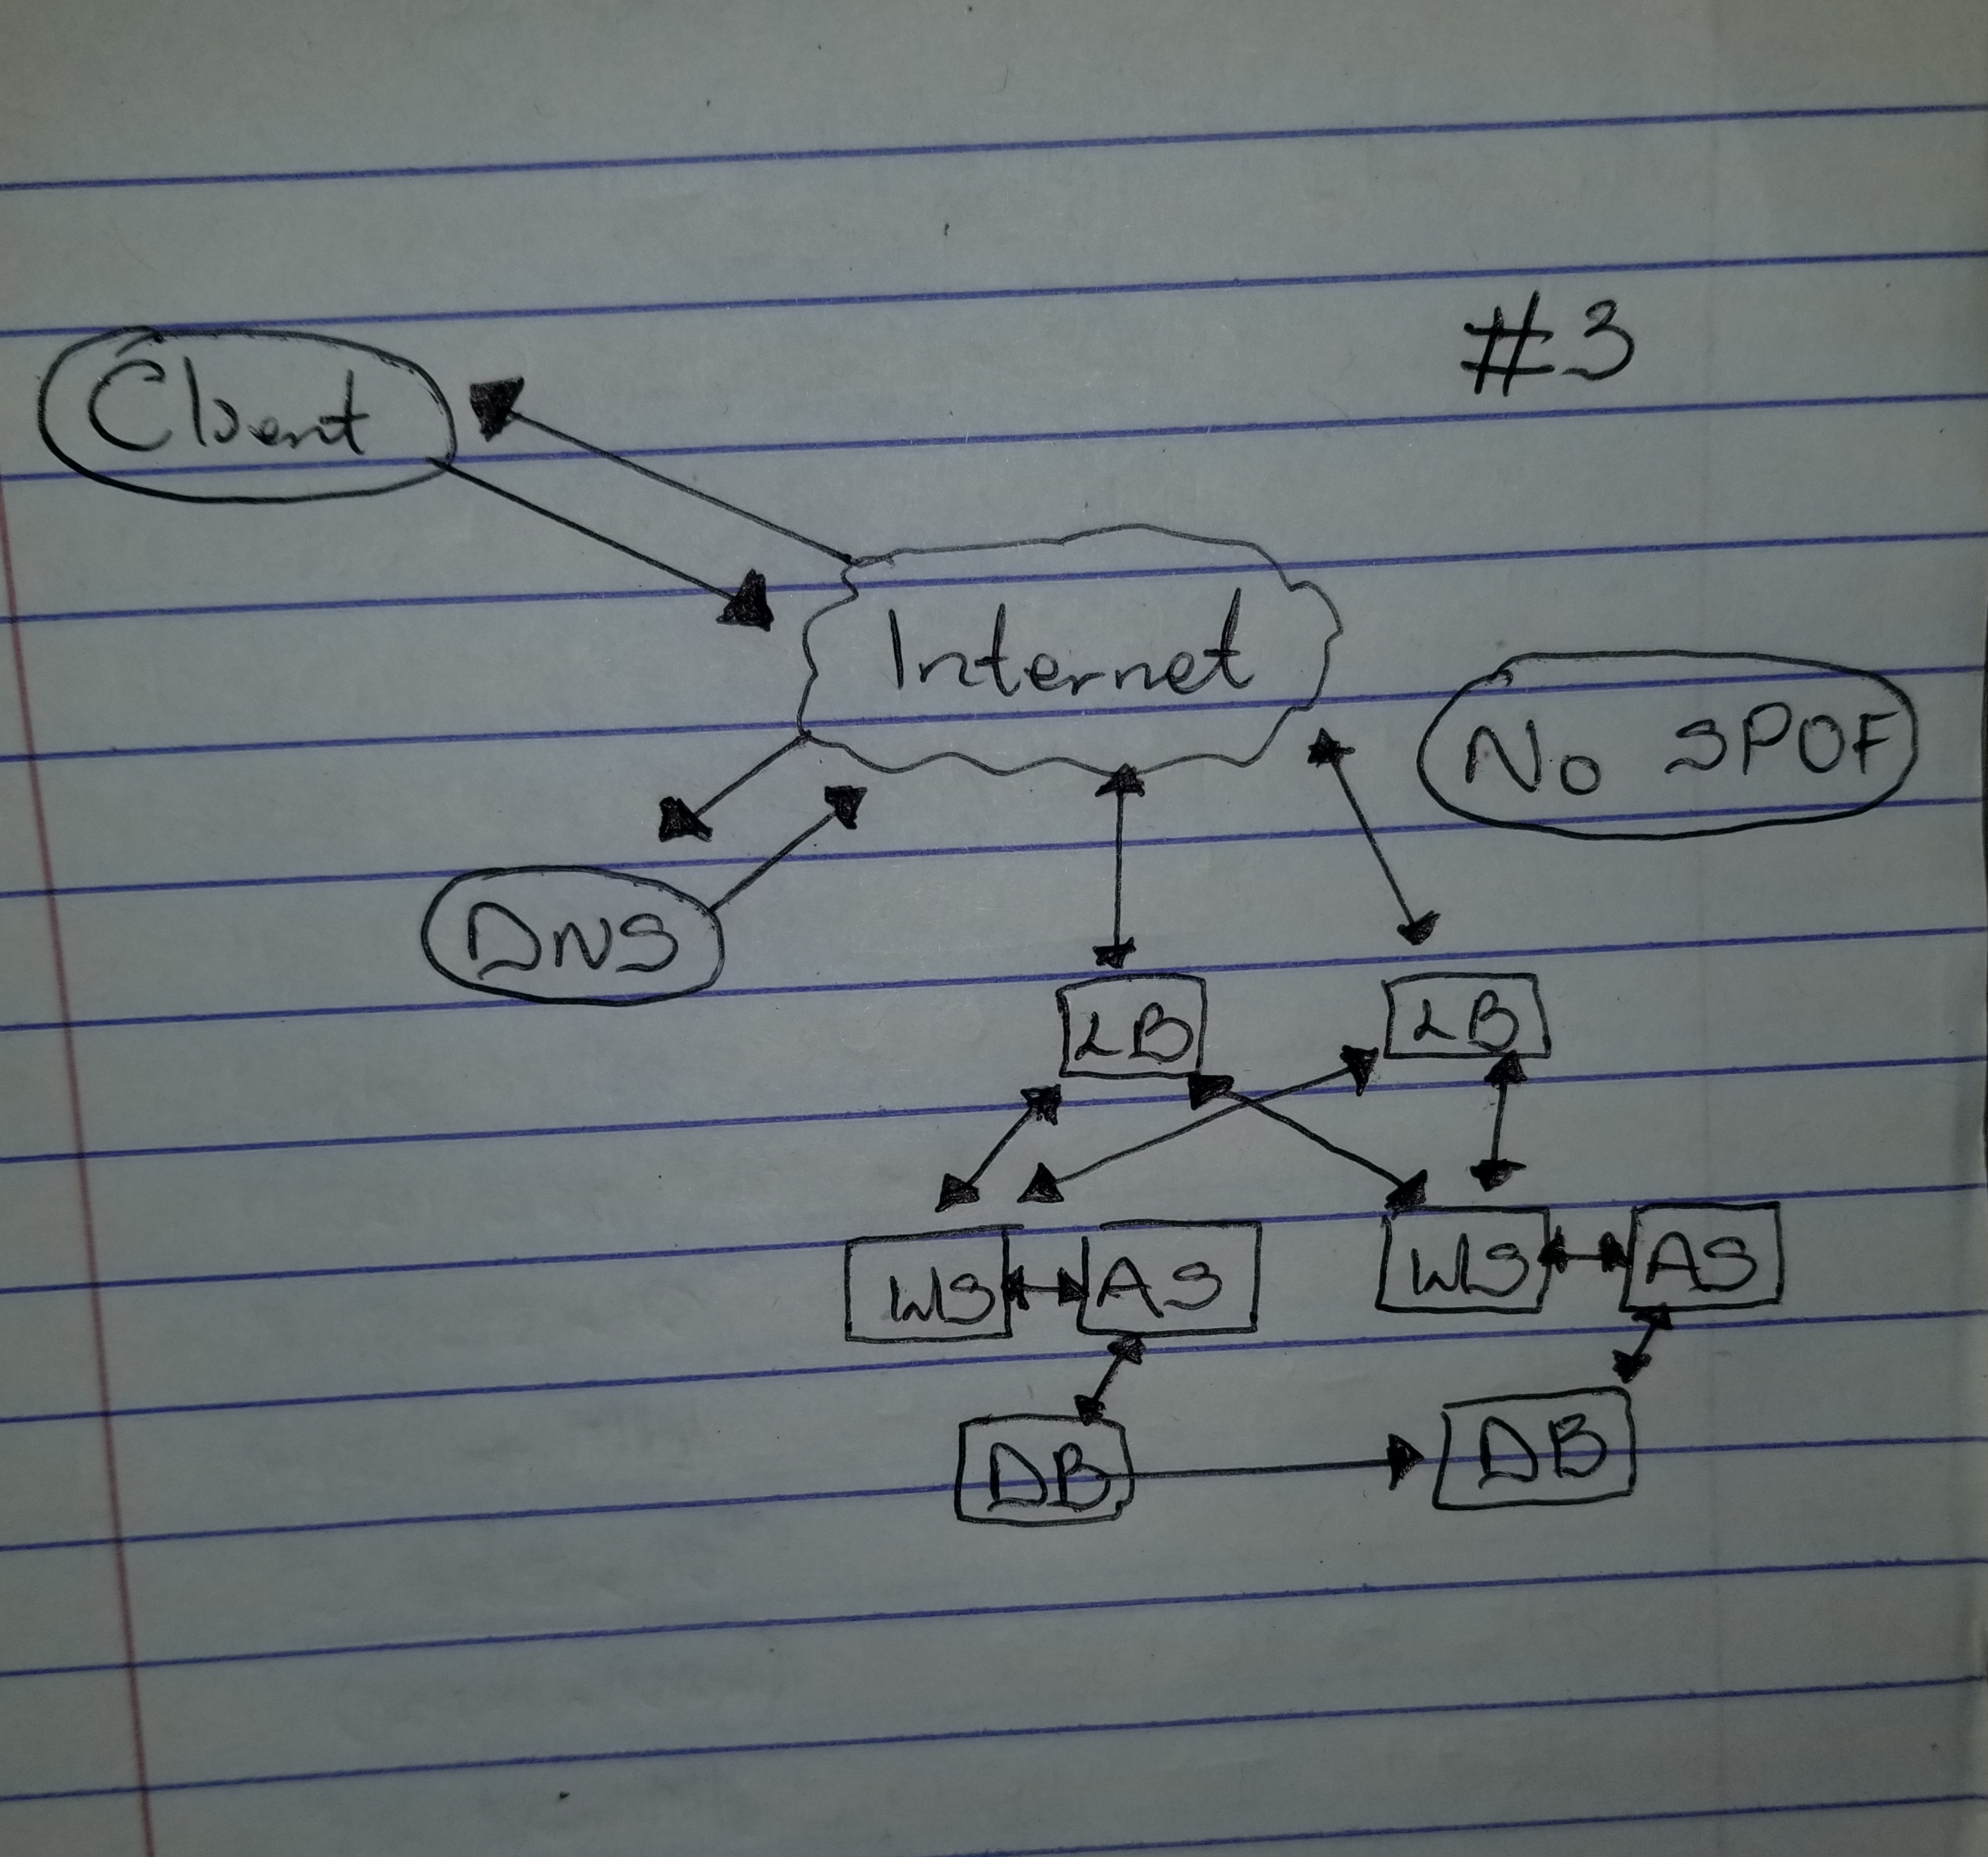 #3
Client
Internet
No SPOF
DNS
LB LB
WS AS WS AS
DB DB